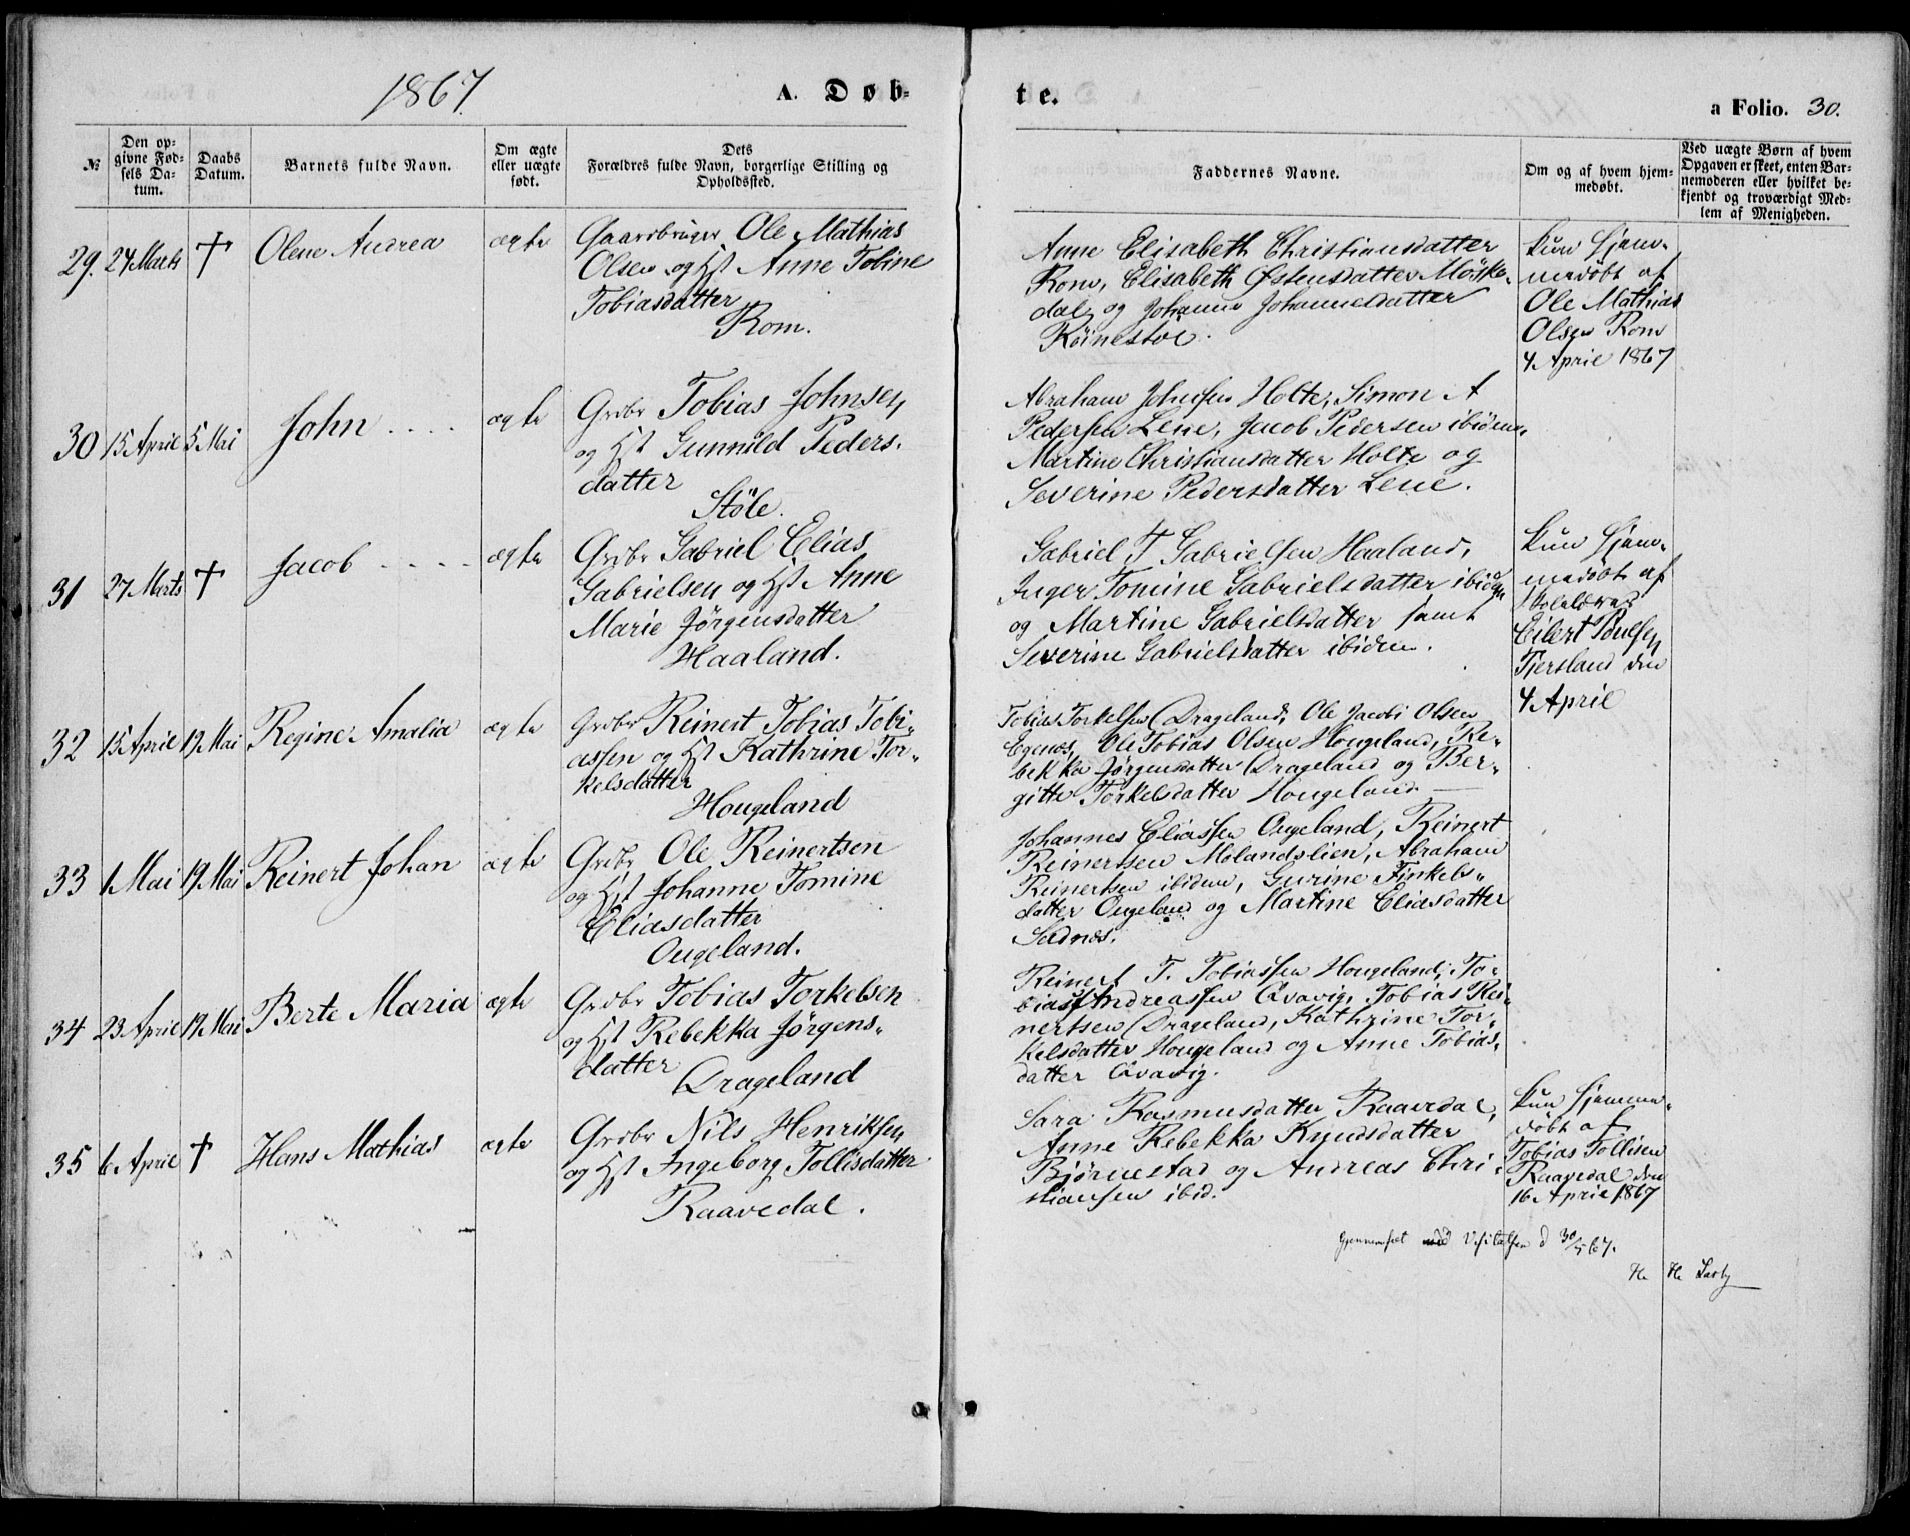 1867.
A. Døb-
te.
a Folio. 30.
№
Den op-
givne Fød-
sels Da-
tum.
Daabs
Datum.
Barnets fulde Navn.
Om ægte
eller uægte
født.
Dets
Forældres fulde Navn, borgerlige Stilling og
Opholdssted.
Faddernes Navne.
Om og af hvem hjem-
medøbt.
Ved uægte Børn af hvem
Opgaven er skeet, enten Bar-
nemoderen eller hvilket be-
kjendt og troværdigt Med-
lem af Menigheden.
29. 24 Marts † Olene Andrea ægte
Gaardbruger Ole Mathias
Olsen og Hst Anne Tobine
Tobiasdatter
Rom.
Anne Elisabeth Christiansdatter
Rom, Elisabeth Østensdatter Møske-
dal og Johanne Johannesdatter
Röinestöl.
kun hjem-
medøbt af
Ole Mathias
Olsen Rom
4 April 1867
30 15 April 5 Mai John .... ægte
Grdbr Tobias Johnsen
og Hst Gunnild Peders-
datter
Støle.
Abraham Johnsen Holte, Simon A
Pedersen Lene, Jacob Pedersen ibidem,
Martine Christiansdatter Holte og
Severine Pedersdatter Lene.
31 27 Marts † Jacob .... ægte
Grdbr Gabriel Elias
Gabrielsen og Hst Anne
Marie Jörgensdatter
Haaland.
Gabriel T. Gabrielsen Haaland,
Inger Tomine Gabrielsdatter ibidem
og Martine Gabrielsdatter samt
Severine Gabrielsdatter ibidem.
kun hjem-
medøbt af
Eilert Poulsen
Tjersland den
4 April
32 15 April 19 Mai Regine Amalia ægte
Grdbr Reinert Tobias Tobi-
assen og Hst Kathrine Tor-
kelsdatter
Hougeland
Tobias Torkelsen Drageland, Ole Jacobi Olsen
Egenæs, Ole Tobias Olsen Hougeland, Re-
bekka Jørgensdatter Drageland og Ber-
gitte Torkelsdatter Hougeland
33 1 Mai 19 Mai Reinert Johan ægte
Grdbr Ole Reinertsen
og Hst Johanne Tomine
Eliasdatter
Ougeland.
Johannes Eliassen Ougeland, Reinert
Reinertsen Molandslien, Abraham
Reinertsen ibidem, Gurine Finkels-
datter Ougeland og Martine Eliasdatter
34 23 April 19 Mai Berte Maria ægte
Grdbr Tobias Torkelsen
og Hst Rebekka Jørgens-
datter
Drageland
Reinert T. Tobiassen Hougeland, To-
bias Andreassen Qvavig, Tobias Rei-
nertsen Drageland, Kathrine Tor-
kelsdatter Hougeland og Anne Tobias-
datter Qvavig.
35 6 April † Hans Mathias ægte
Grdbr Nils Henriksen
og Hst Ingeborg Tollisdatter
Raavedal.
Sara Rasmusdatter Raavedal,
Anne Rebekka Knudsdatter
Bjørnestad og Andreas Chri-
stiansen ibid.
kun hjemme-
døbt af
Tobias Tollisen
Raavedal den
16 April 1867
Gjennemseet ved Visitatsen d 30/5 67.